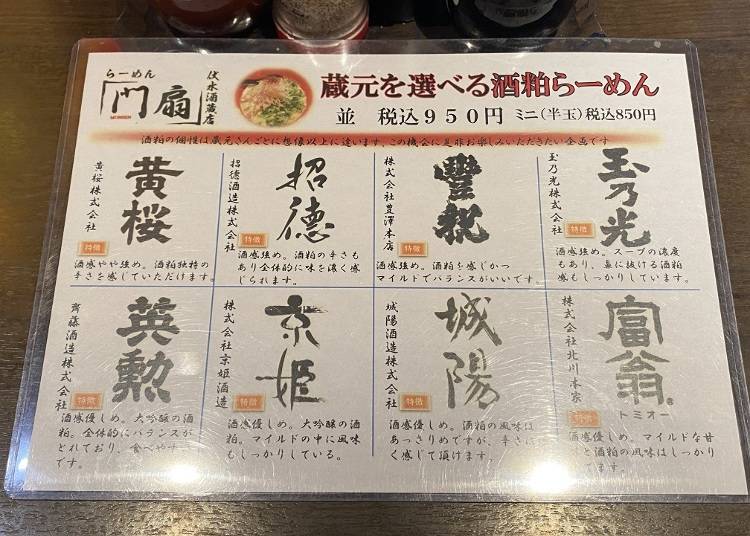 らーめん
門扇
伏水酒蔵店
蔵元を選べる酒粕らーめん
並 税込950円 ミニ(半玉)税込850円
酒粕の個性は蔵元さんごとに想像以上に違います。この機会に是非お楽しみいただきたい企画です
黄桜
黄桜株式会社
特徴
酒感やや強め。酒粕独特の
辛さを感じていただけます。
招德
招德酒造株式会社
特徴
酒感強め。酒粕の辛さも
あり全体的に味を濃く感
じられます。
豐祝
株式会社豊澤本店
特徴
酒感強め。酒粕を感じかつ
マイルドでバランスがいいです
玉乃光
玉乃光株式会社
特徴
酒感強め。スープの濃度
もあり、鼻に抜ける酒粕
感もしっかりしています。
英勲
齊藤酒造株式会社
特徴
酒感優しめ。大吟醸の酒
粕。全体的にバランスが
とれており、食べやす
です。
京姫
株式会社京姫酒造
特徴
酒感優しめ。大吟醸の酒
粕。マイルドの中に風味
もしっかりしている。
城陽
城陽酒造株式会社
特徴
酒感優しめ。酒粕の風味は
あっさりめですが、辛さは
く感じて頂けます。
富翁®
トミオー
株式会社北川本家
特徴
酒感優しめ。マイルドな甘
と酒粕の風味はしっかり
てます。